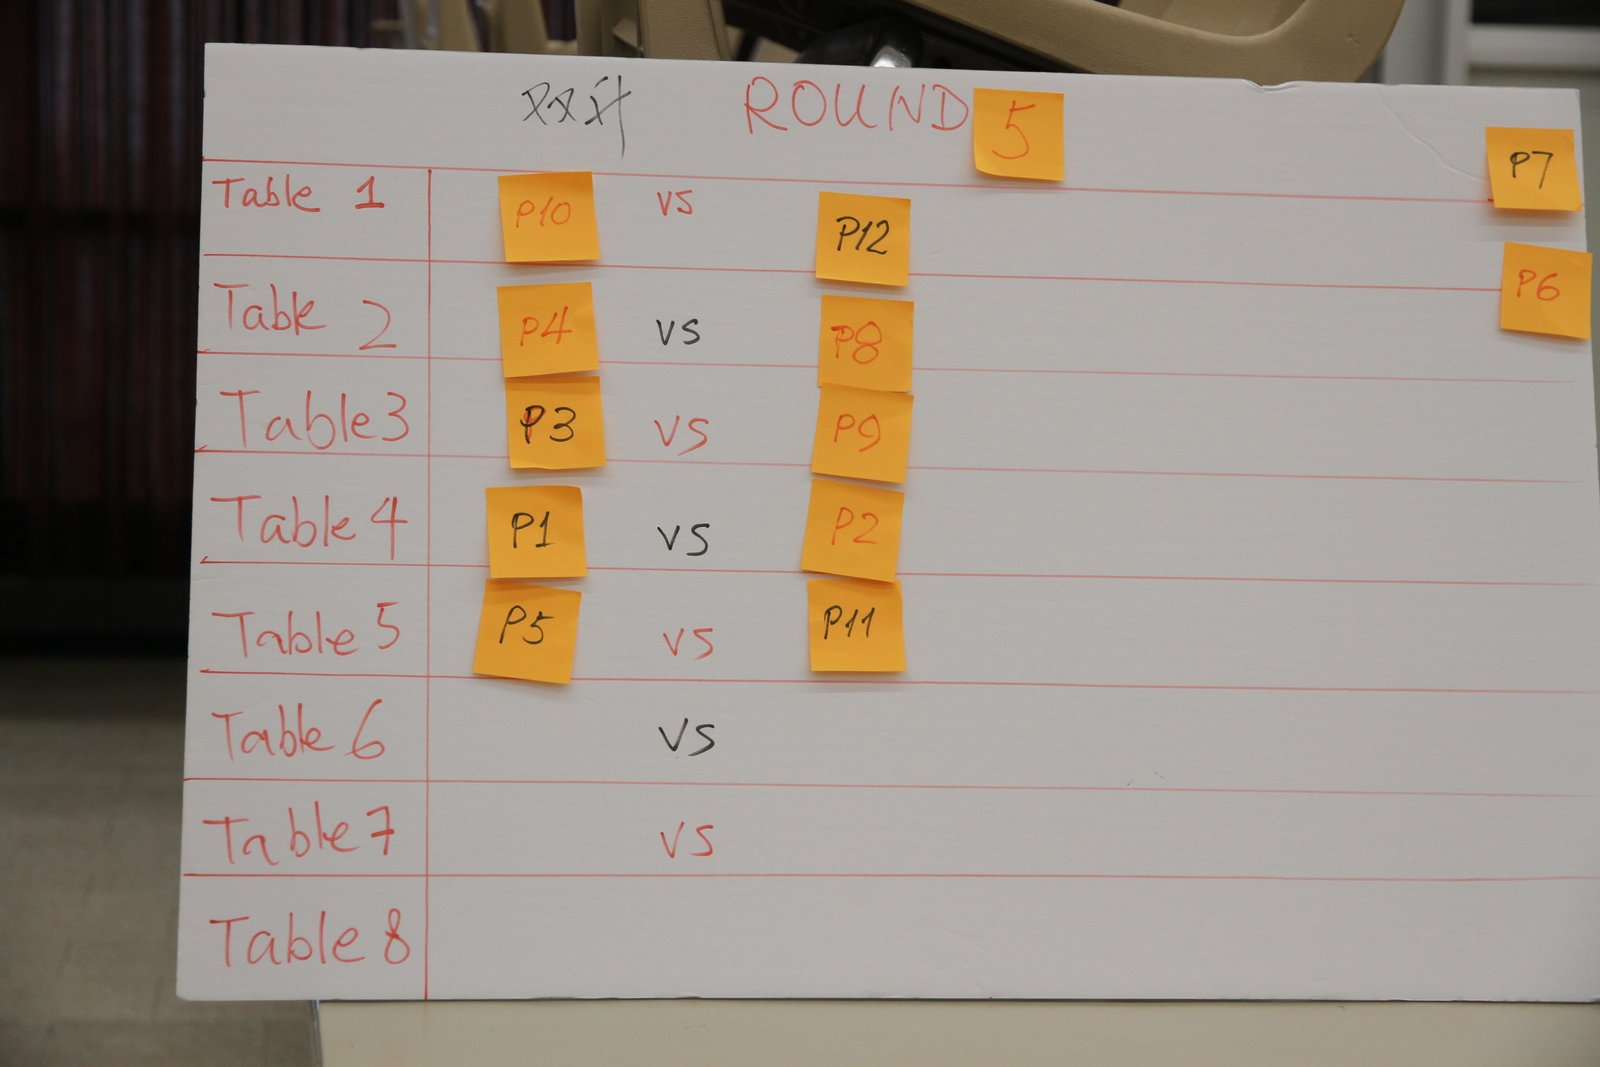 ROUND 5
P7
Table 1 P10 vs P12
P6
Table 2 P4 vs P8
Table 3 P3 vs P9
Table 4 P1 vs P2
Table 5 P5 vs P11
Table 6 vs
Table 7 vs
Table 8